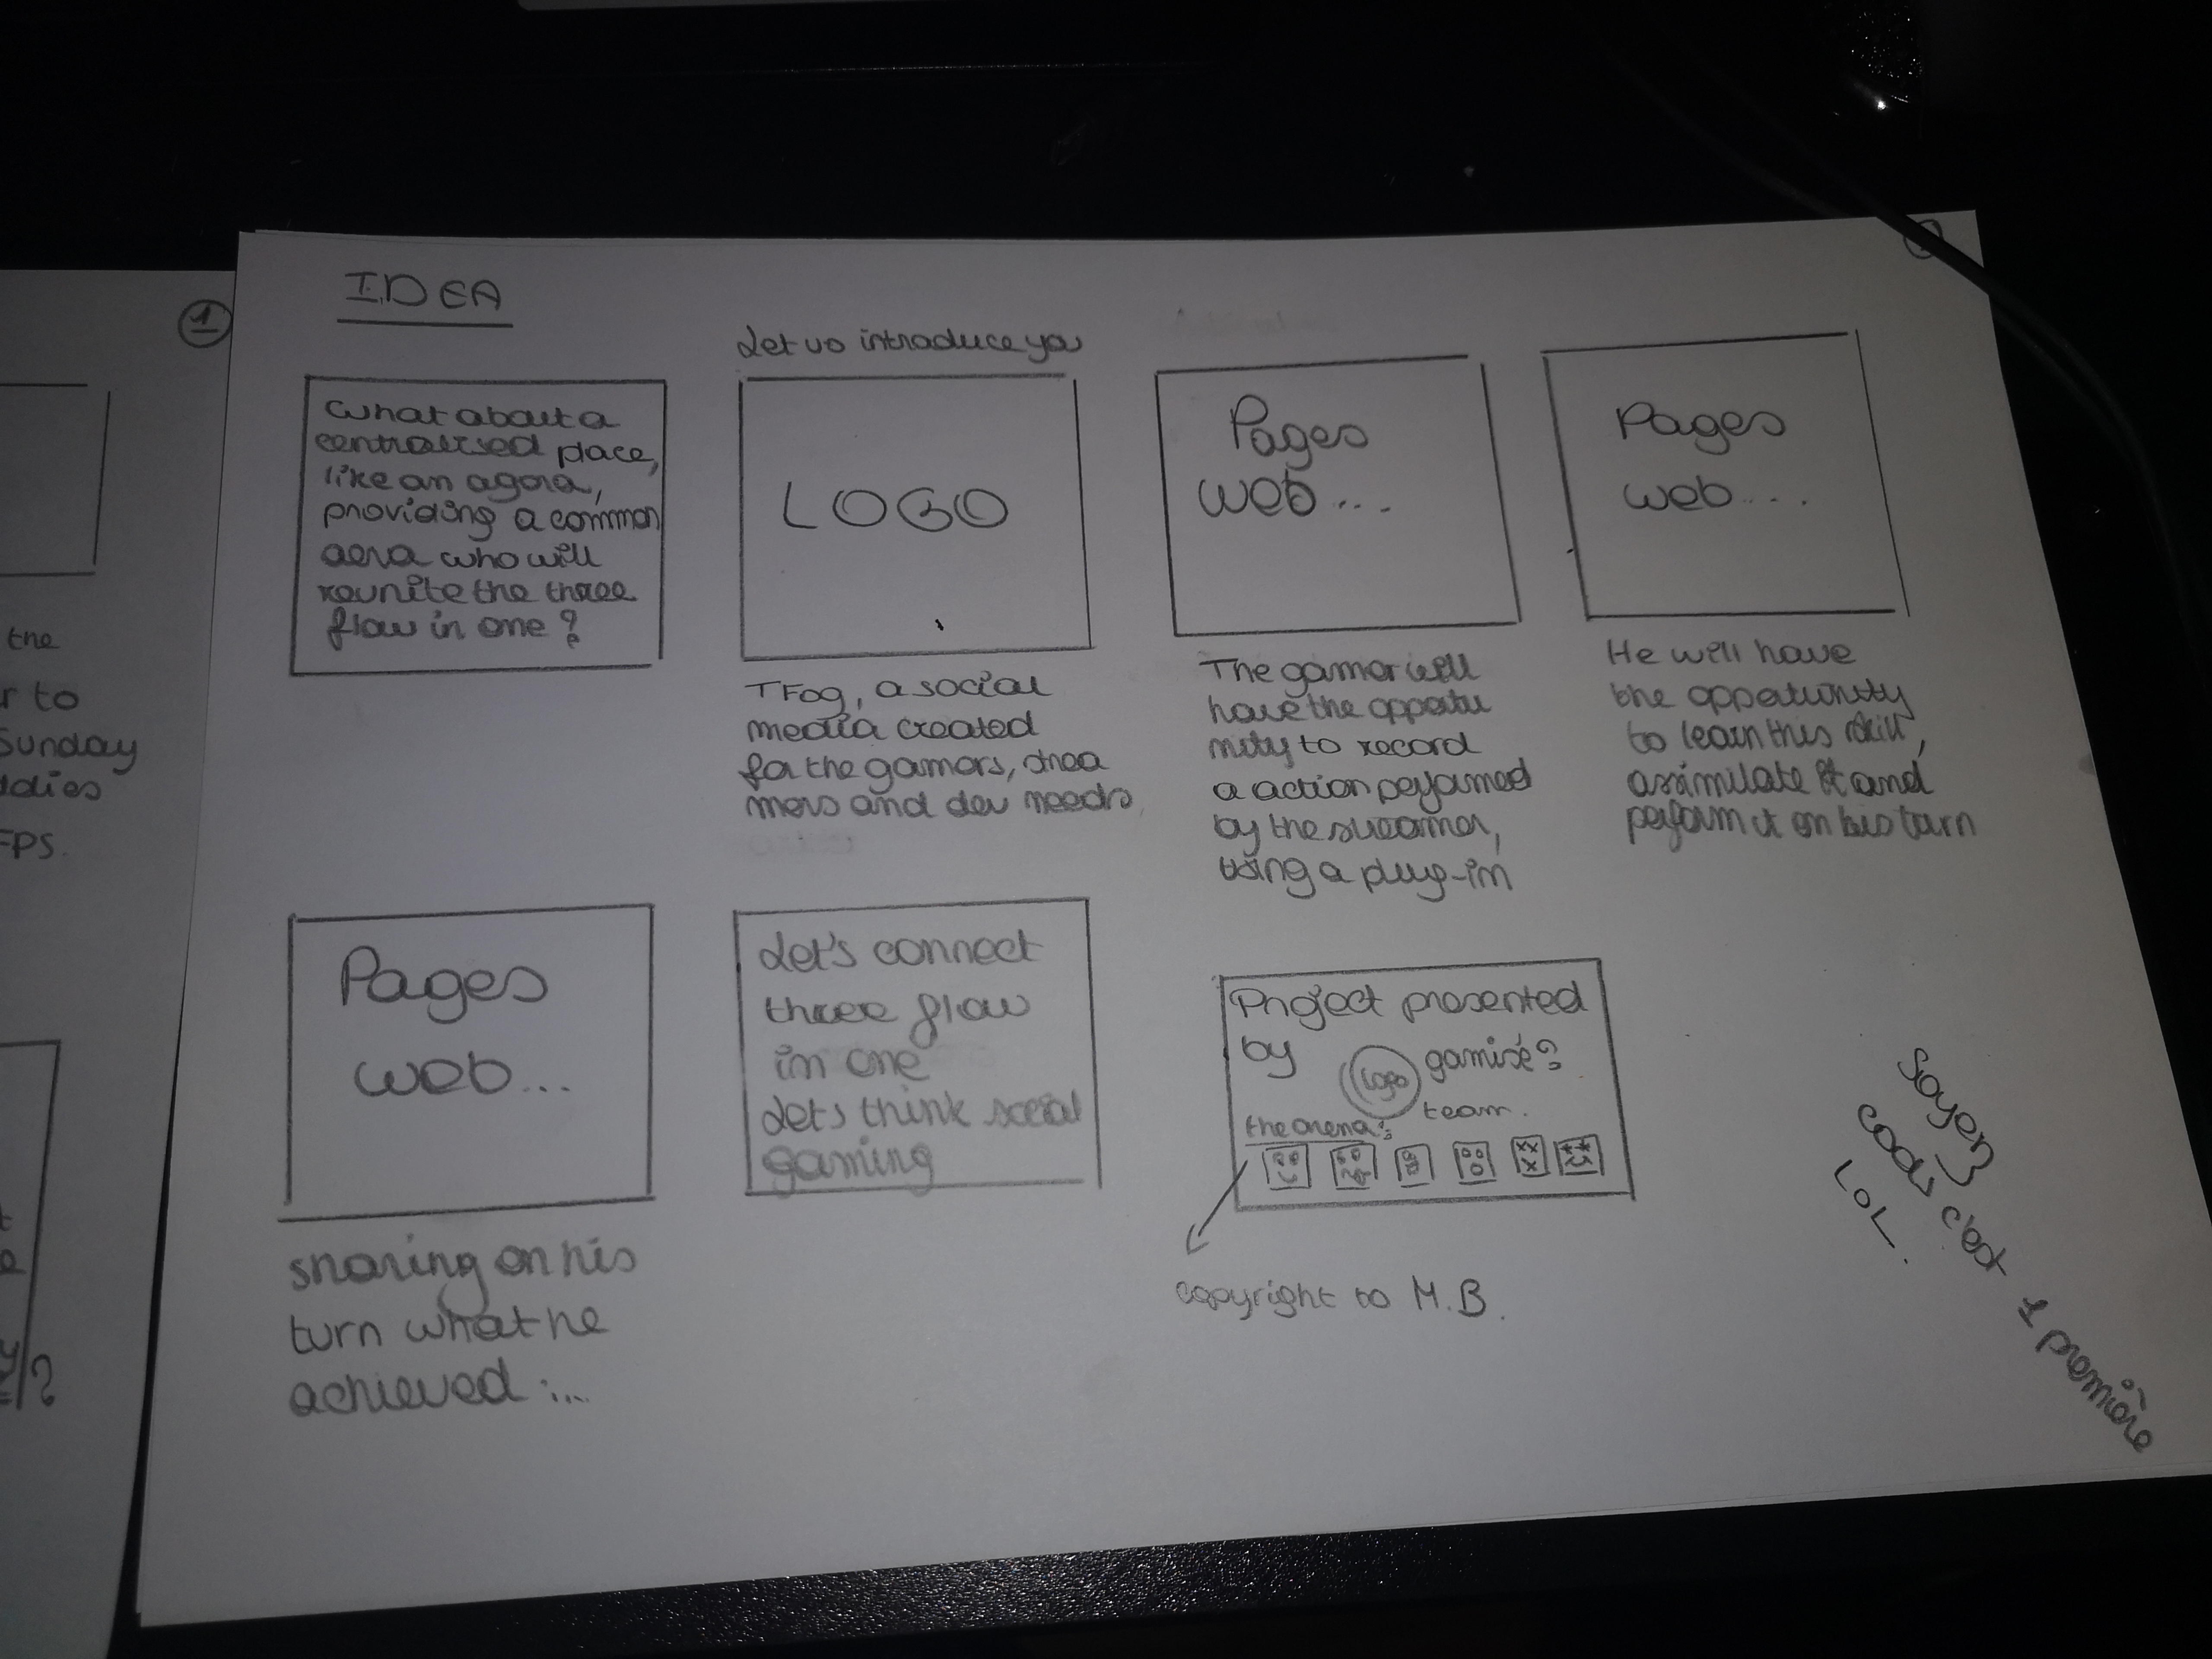 1
the
r to
Sunday
ddies
FPS.
IDEA
What about a
centralised place,
like an agora,
providing a common
aera who will
reunite the three
flow in one ?
Let us introduce you
LOGO
TFog, a social
media created
for the gamers, strea
mers and dev needs
Pages
web...
The gamer will
have the opportu
nity to record
a action performed
by the streamer,
using a plug-in
Pages
web...
He will have
the oppertunity
to learn this skill,
assimilate it and
perform it on his turn
Pages
web...
sharing on his
turn what he
achieved ....
Let's connect
three flow
in one
Lets think social
gaming
Project presented
by
Logo
team.
the arena :
copyright to M.B.
Soyez
cools c'est 1 première
LOL.